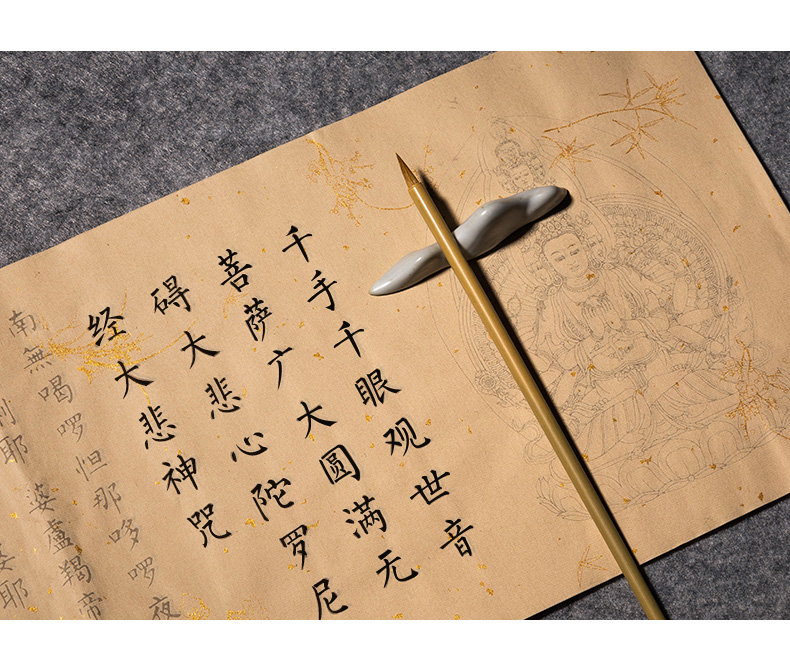 千手千眼观世音
菩萨广大圆满无
碍大悲心陀罗尼
经大悲神咒
南無喝啰怛那哆啰夜
利耶 婆盧羯帝
耶